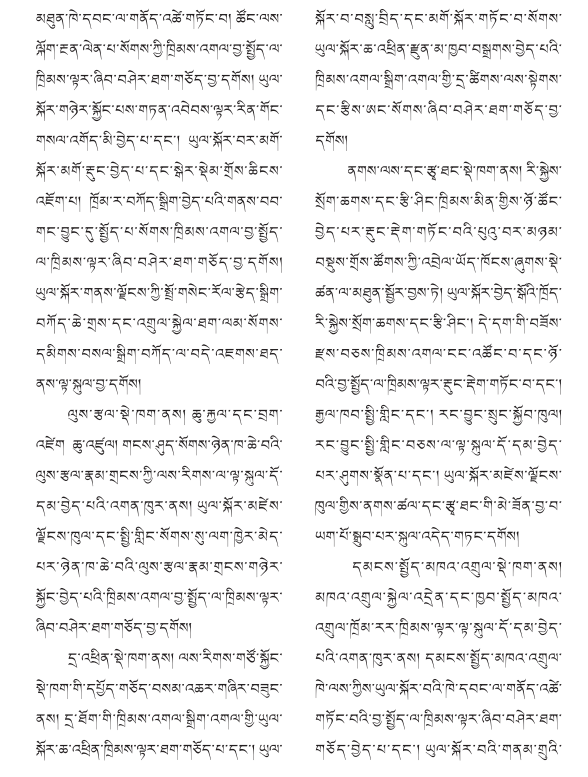 མཐུན་ཁེ་དབང་ལ་གནོད་འཚེ་གཏོང་བ། ཚོང་ལས་
ལྐོག་རྔན་ལེན་པ་སོགས་ཀྱི་ཁྲིམས་འགལ་བྱ་སྤྱོད་ལ་
ཁྲིམས་ལྟར་ཞིབ་བཤེར་ཐག་གཅོད་བྱ་དགོས། ཡུལ་
སྐོར་གཉེར་སྐྱོང་པས་གཏན་འབེབས་ལྟར་རིན་གོང་
གསལ་འགོད་མི་བྱེད་པ་དང་། ཡུལ་སྐོར་བར་མགོ་
སྐོར་མགོ་རྡུང་བྱེད་པ་དང་སྒེར་སྡེམ་གྲོས་ཆིངས་
འཇོག་པ། ཁྲོམ་ར་བཀོད་སྒྲིག་བྱེད་པའི་གནས་བབ་
གང་བྱུང་དུ་སྤྱོད་པ་སོགས་ཁྲིམས་འགལ་བྱ་སྤྱོད་
ལ་ཁྲིམས་ལྟར་ཞིབ་བཤེར་ཐག་གཅོད་བྱ་དགོས།
ཡུལ་སྐོར་གནས་ལྗོངས་ཀྱི་སྤྲོ་གསེང་རོལ་རྩེད་སྒྲིག་
བཀོད་ཆེ་གྲས་དང་འགྲུལ་སྐྱེལ་ཐག་ལམ་སོགས་
དམིགས་བསལ་སྒྲིག་བཀོད་ལ་བདེ་འཇགས་ཐད་
ནས་ལྟ་སྐུལ་བྱ་དགོས།
ལུས་རྩལ་སྡེ་ཁག་ནས། ཆུ་རྐྱལ་དང་བྲག་
འཛེག ཆུ་འཛུལ། གངས་ཤུད་སོགས་ཉེན་ཁ་ཆེ་བའི་
ལུས་རྩལ་རྣམ་གྲངས་ཀྱི་ལས་རིགས་ལ་ལྟ་སྐུལ་དོ་
དམ་བྱེད་པའི་འགན་ཁུར་ནས། ཡུལ་སྐོར་མཛེས་
ལྗོངས་ཁུལ་དང་སྤྱི་གླིང་སོགས་སུ་ལག་ཁྱེར་མེད་
པར་ཉེན་ཁ་ཆེ་བའི་ལུས་རྩལ་རྣམ་གྲངས་གཉེར་
སྐྱོང་བྱེད་པའི་ཁྲིམས་འགལ་བྱ་སྤྱོད་ལ་ཁྲིམས་ལྟར་
ཞིབ་བཤེར་ཐག་གཅོད་བྱ་དགོས།
དྲ་འཕྲིན་སྡེ་ཁག་ནས། ལས་རིགས་གཙོ་སྐྱོང་
སྡེ་ཁག་གི་དཔྱོད་གཅོད་བསམ་འཆར་གཞིར་བཟུང་
ནས། དྲ་ཐོག་གི་ཁྲིམས་འགལ་སྒྲིག་འགལ་གྱི་ཡུལ་
སྐོར་ཆ་འཕྲིན་ཁྲིམས་ལྟར་ཐག་གཅོད་པ་དང་། ཡུལ་
སྐོར་བ་བསླུ་བྲིད་དང་མགོ་སྐོར་གཏོང་བ་སོགས་
ཡུལ་སྐོར་ཆ་འཕྲིན་རྫུན་མ་ཁྱབ་བསྒྲགས་བྱེད་པའི་
ཁྲིམས་འགལ་སྒྲིག་འགལ་གྱི་དྲ་ཚིགས་ལས་སྟེགས་
དང་རྩིས་ཨང་སོགས་ཞིབ་བཤེར་ཐག་གཅོད་བྱ་
དགོས།
ནགས་ལས་དང་རྩྭ་ཐང་སྡེ་ཁག་ནས། རི་སྐྱེས་
སྲོག་ཆགས་དང་རྩི་ཤིང་ཁྲིམས་མིན་གྱིས་ཉོ་ཚོང་
བྱེད་པར་རྡུང་རྡེག་གཏོང་བའི་པུའུ་བར་མཉམ་
བསྡུས་གྲོས་ཚོགས་ཀྱི་འབྲེལ་ཡོད་ཁོངས་ཞུགས་སྡེ་
ཚན་ལ་མཐུན་སྦྱོར་བྱས་ཏེ། ཡུལ་སྐོར་བྱེད་སྒོའི་ཁྲོད་
རི་སྐྱེས་སྲོག་ཆགས་དང་རྩི་ཤིང་། དེ་དག་གི་བཟོས་
རྫས་བཅས་ཁྲིམས་འགལ་ངང་འཚོང་བ་དང་ཉོ་
བའི་བྱ་སྤྱོད་ལ་ཁྲིམས་ལྟར་རྡུང་རྡེག་གཏོང་བ་དང་།
རྒྱལ་ཁབ་སྤྱི་གླིང་དང་། རང་བྱུང་སྲུང་སྐྱོབ་ཁུལ།
རང་བྱུང་སྤྱི་གླིང་བཅས་ལ་ལྟ་སྐུལ་དོ་དམ་བྱེད་
པར་ཤུགས་སྣོན་པ་དང་། ཡུལ་སྐོར་མཛེས་ལྗོངས་
ཁུལ་གྱིས་ནགས་ཚལ་དང་རྩྭ་ཐང་གི་མེ་ཟོན་བྱ་བ་
ཡག་པོ་སྒྲུབ་པར་སྐུལ་འདེད་གཏང་དགོས།
དམངས་སྤྱོད་མཁའ་འགྲུལ་སྡེ་ཁག་ནས།
མཁའ་འགྲུལ་སྐྱེལ་འདྲེན་དང་ཁྱབ་སྤྱོད་མཁའ་
འགྲུལ་ཁྲོམ་རར་ཁྲིམས་ལྟར་ལྟ་སྐུལ་དོ་དམ་བྱེད་
པའི་འགན་ཁུར་ནས། དམངས་སྤྱོད་མཁའ་འགྲུལ་
ཁེ་ལས་ཀྱིས་ཡུལ་སྐོར་བའི་ཁེ་དབང་ལ་གནོད་འཚེ་
གཏོང་བའི་བྱ་སྤྱོད་ལ་ཁྲིམས་ལྟར་ཞིབ་བཤེར་ཐག་
གཅོད་བྱེད་པ་དང་། ཡུལ་སྐོར་བའི་གནམ་གྲུའི་